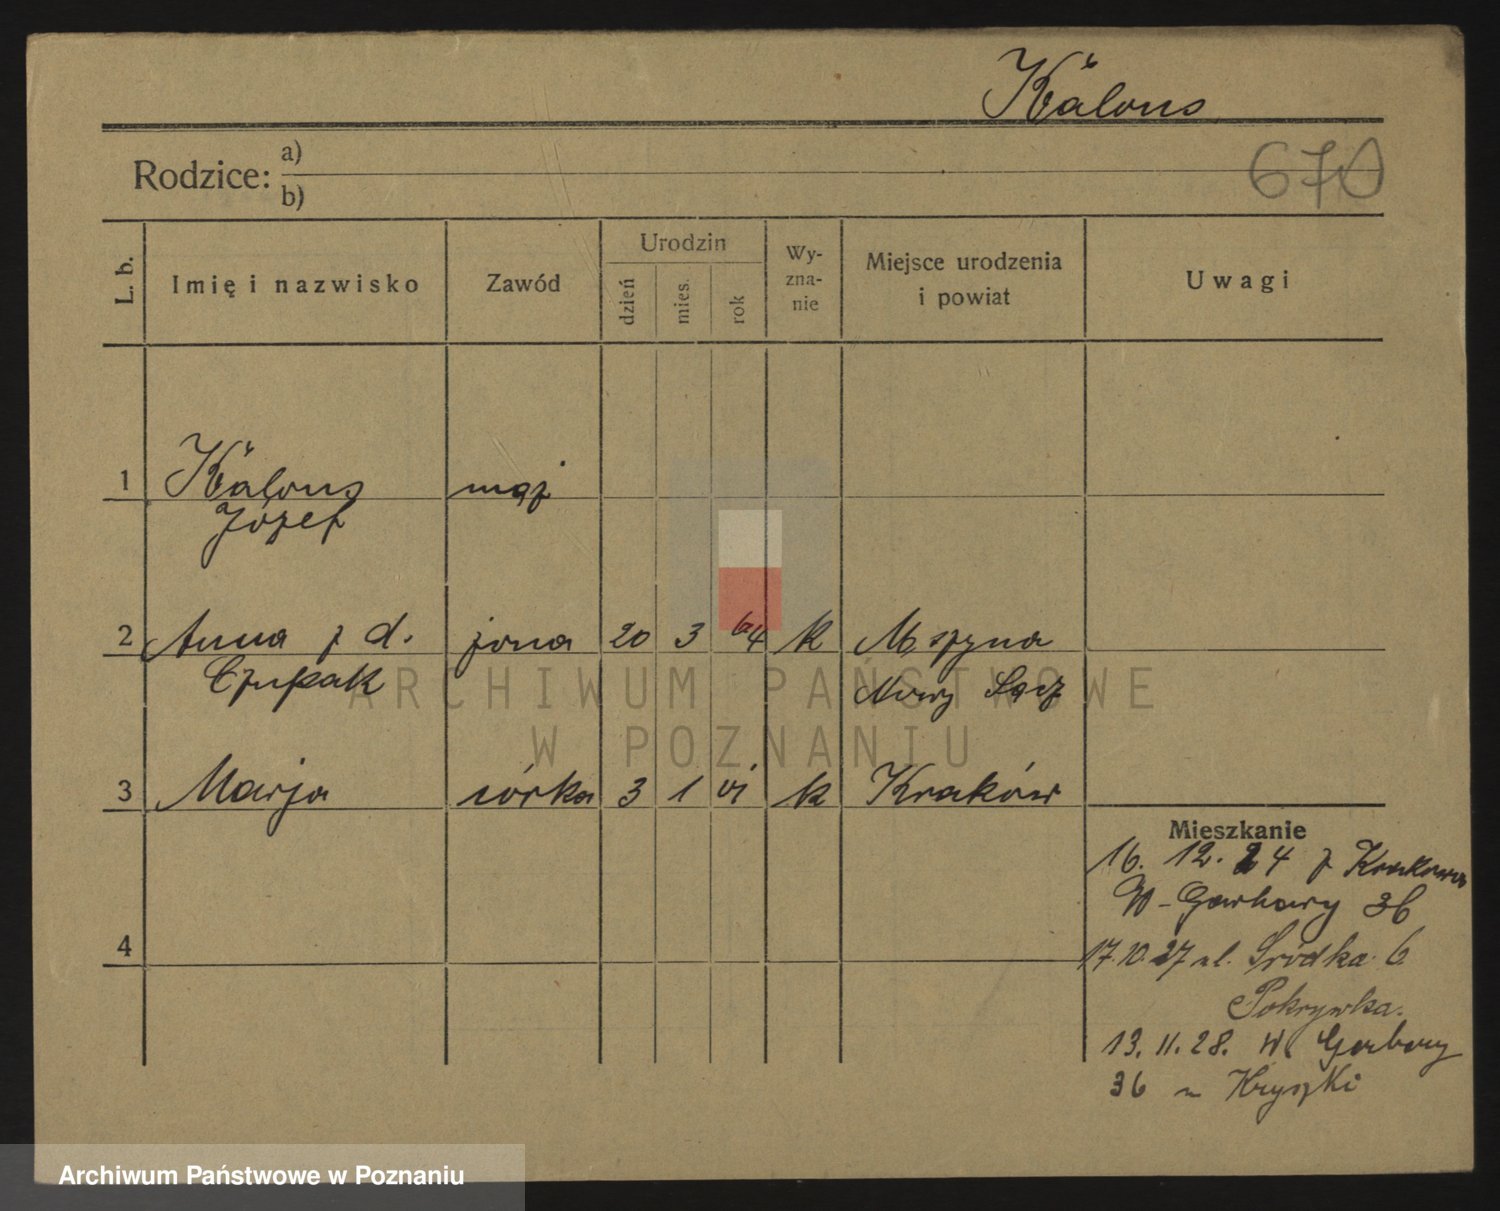 Kälous
670
Rodzice: a)
b)
L. b. Imię i nazwisko Zawód Urodzin dzień mies. rok Wy-zna-nie Miejsce urodzenia i powiat Uwagi
1 Kälous mąż
Józef
2 Anna z d. żona 20 3 64 k Mszyna
Czupak Nowy Sącz
ARCHIWUM PAŃSTWOWE
W POZNANIU
3 Marja córka 3 1 k Kraków
Mieszkanie
16. 12. 24 z Krakowa
W-Garbary 36
4
17.10.27 ul. Śródka 6
Pokrywka.
13. 11. 28. W Garbary
36 Hryszki
Archiwum Państwowe w Poznaniu